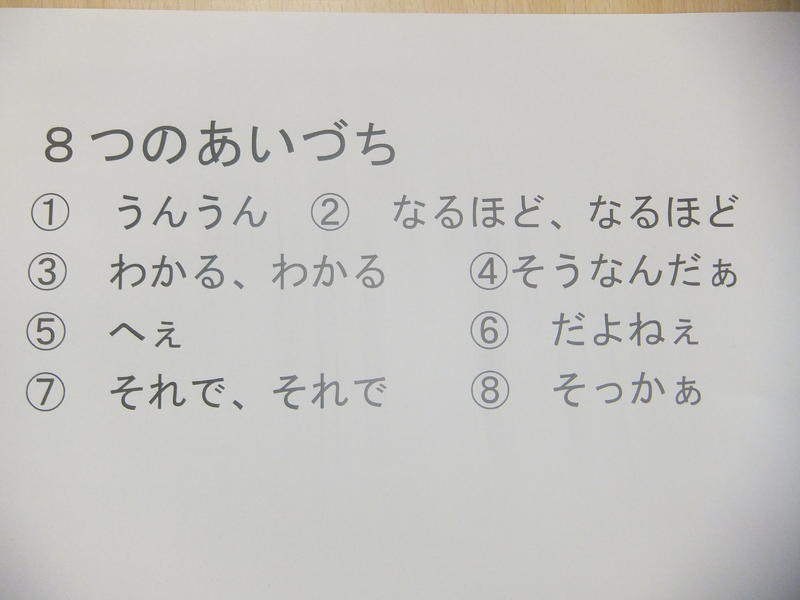 ８つのあいづち
①　うんうん　②　なるほど、なるほど
③　わかる、わかる　　④そうなんだぁ
⑤　へぇ　　　　　　　⑥　だよねぇ
⑦　それで、それで　　⑧　そっかぁ